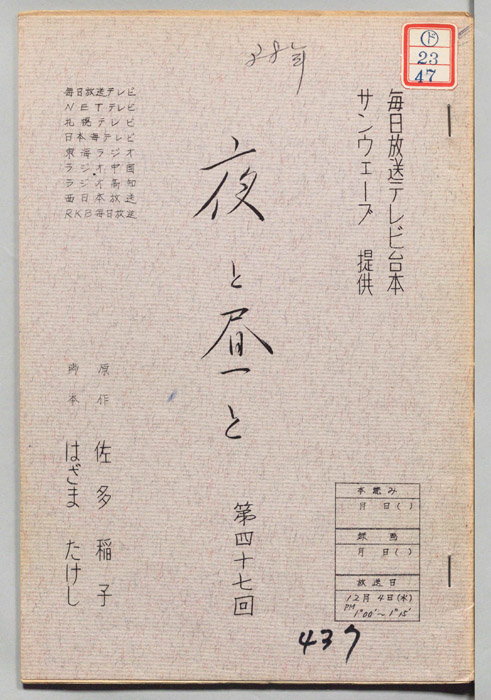 ㋣
23
47
28年
毎日放送テレビ台本
サンウェーブ 提供
夜と昼と
第四十七回
毎日放送テレビ
NETテレビ
札幌テレビ
日本海テレビ
東海ラジオ
ラジオ中国
ラジオ高知
西日本放送
RKB毎日放送
原作 佐多稲子
脚本 はざまたけし
本読み
月 日( )
録画
月 日( )
放送日
12月4日(水)
PM 1°00'〜1°15'
437